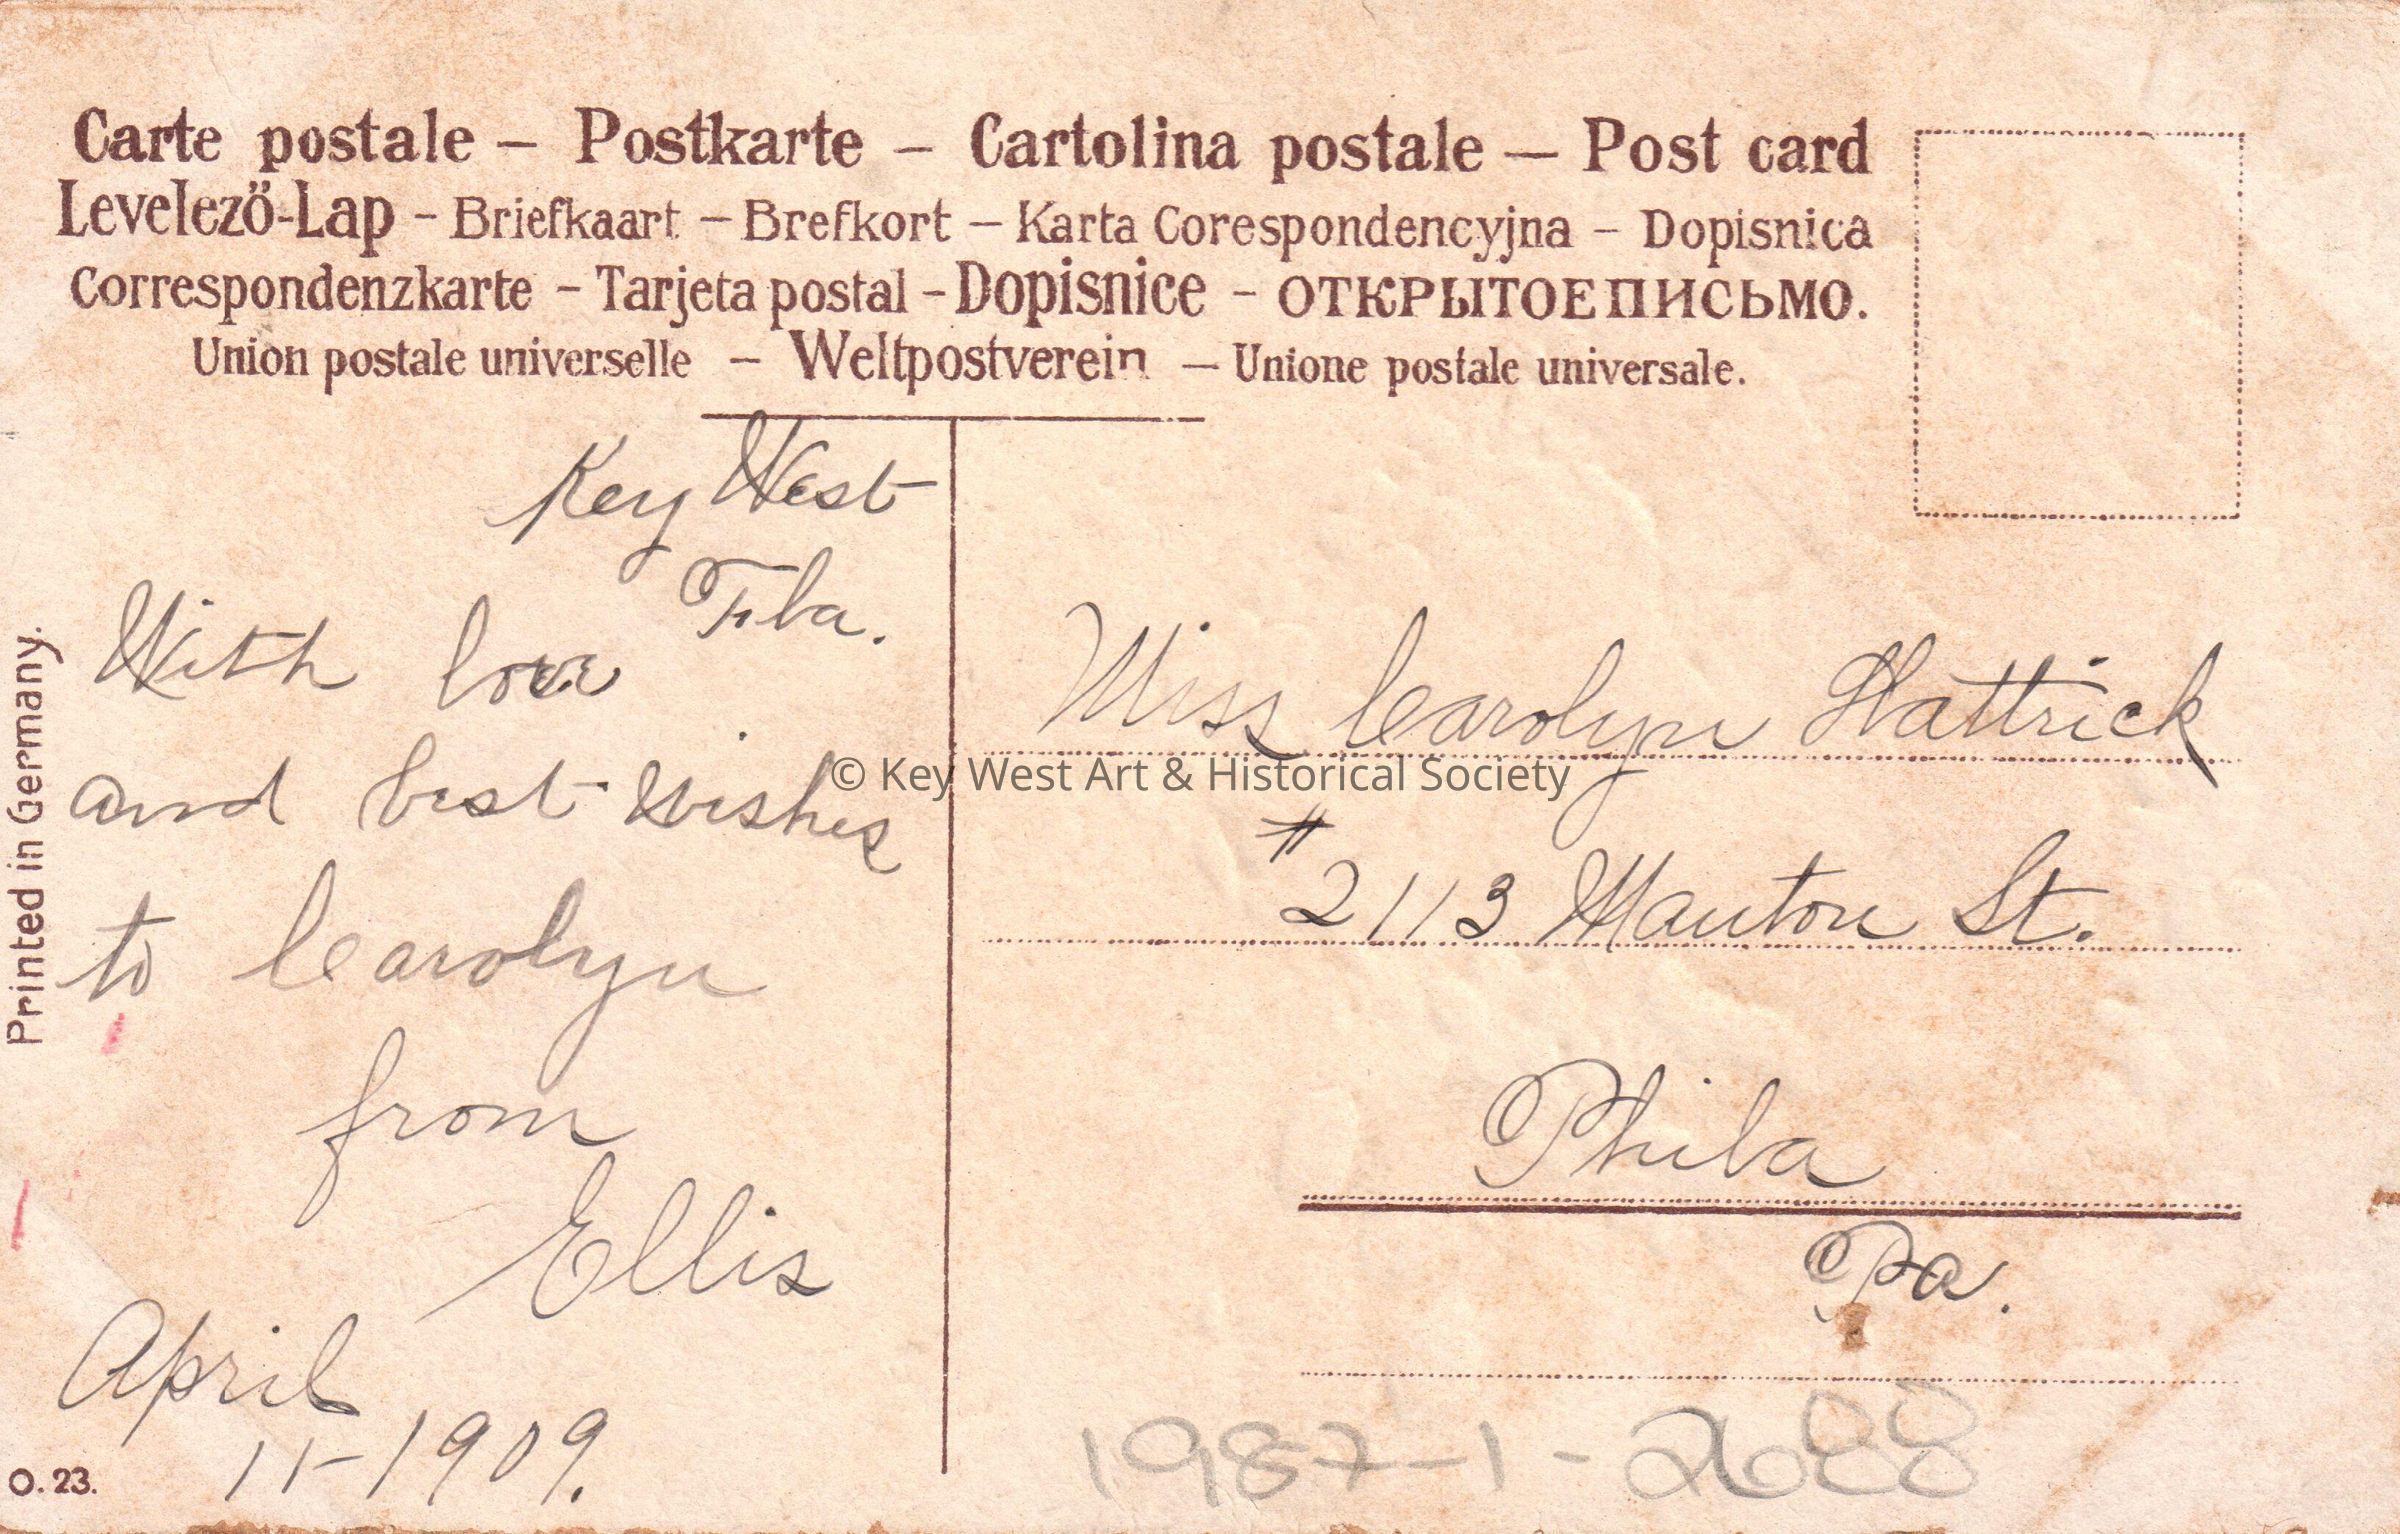 Carte postale — Postkarte — Cartolina postale — Post card
Levelező-Lap — Briefkaart — Brefkort — Karta Corespondencyjna — Dopisnica
Correspondenzkarte — Tarjeta postal — Dopisnice — ОТКРЫТОЕПИСЬМО.
Union postale universelle — Weltpostverein — Unione postale universale.
Key West
Fla.
With love
and best wishes
to Carolyn
from
Ellis
April
11-1909.
Printed in Germany.
O. 23.
Miss Carolyn Hattrick
© Key West Art & Historical Society
# 2113 Manton St.
Phila
Pa.
1987-1-